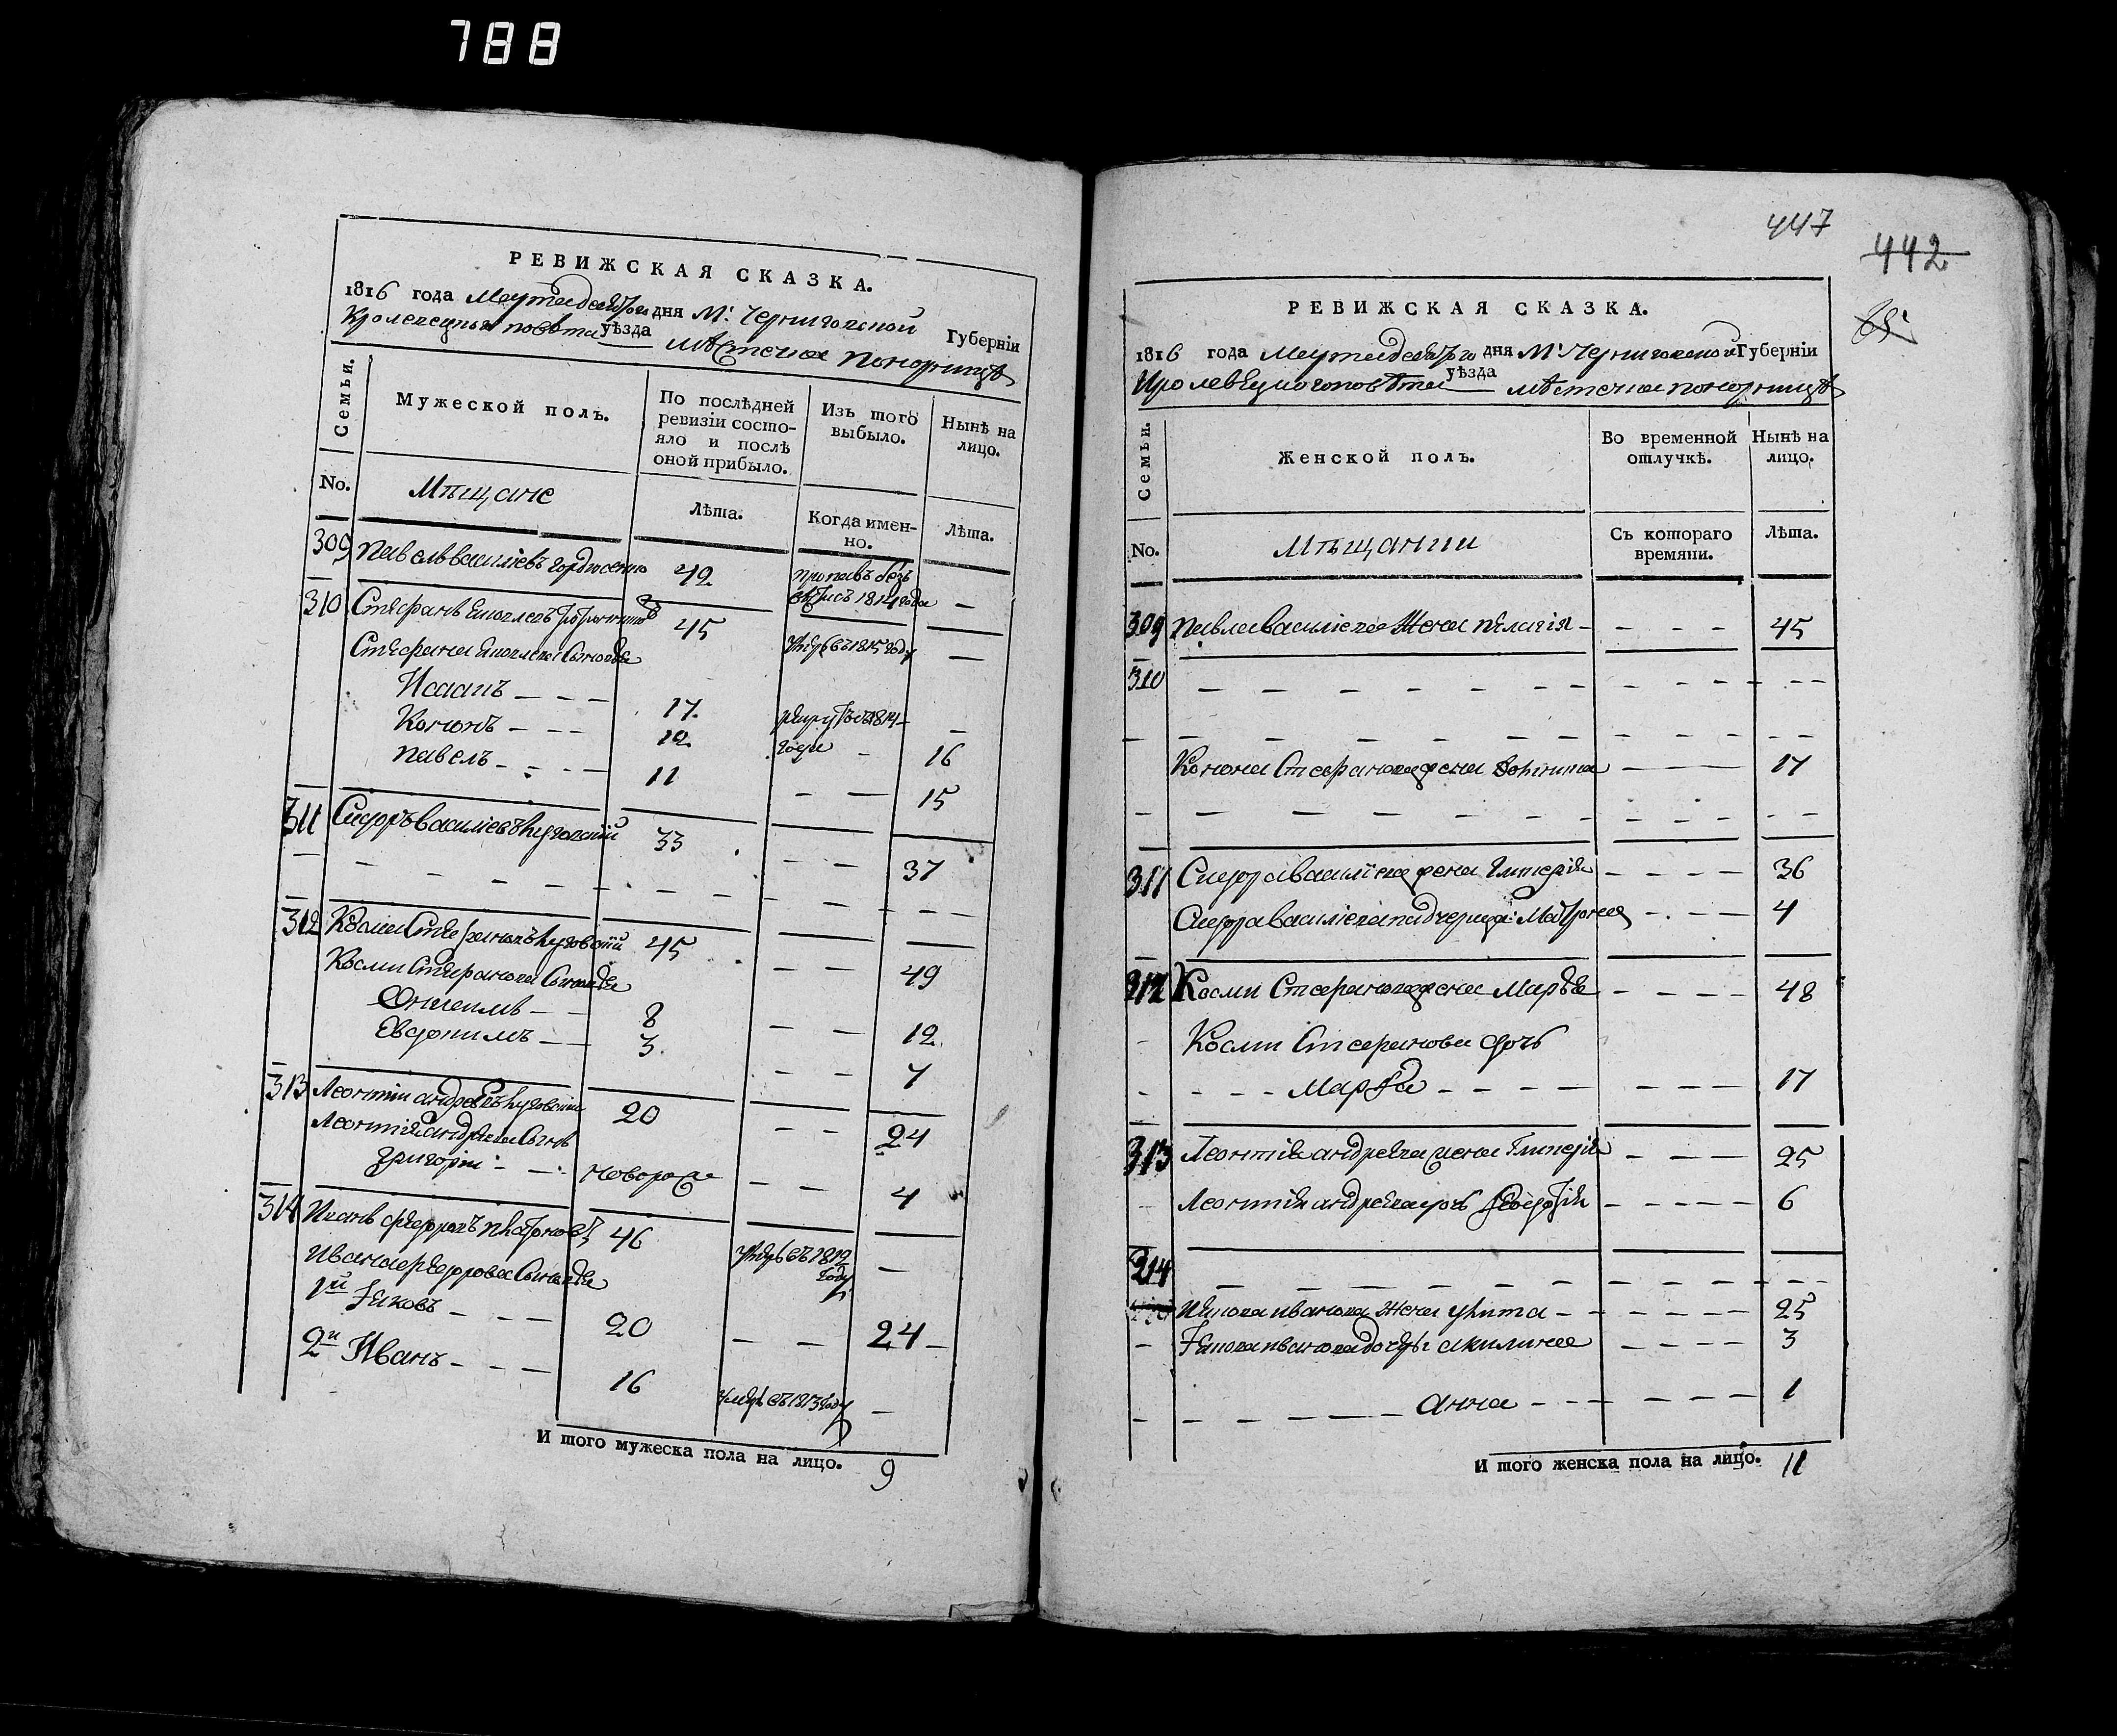 788
РЕВИЖСКАЯ СКАЗКА.
1816 года дня М: Черниговской Губерніи
Кролевецкого повѣта уѣзда мѣстечка Понорницѣ
Семьи.
Мужеской полъ.
По послѣдней ревизіи состояло и послѣ оной прибыло.
Изъ того выбыло.
Нынѣ на лицо.
No.
Мѣщане
Лѣта.
Когда именно.
Лѣта.
309 Павелъ Василіевъ 42 пропавъ безъ 1814 года —
310 Стефанъ 45 умеръ въ 1815 году —
Стефана Сыновья
Исаакъ — — — 17 1814 —
Кононъ — — — 12 года — 16
Павелъ — — — — 11 — — 15
311 Сидоръ Василіевъ 33 — — 37
312 Косма Стефановъ 45 — — 49
Косми Стефанова Сыновья
8 — — 12
3 — — 7
313 Леонтій Андреевъ 20 — — 24
Леонтія Андреева Сынъ
Григорій — — — — 4
314 Иванъ 46 умеръ въ 1812 году —
Ивана Федорова Сыновья
1й Яковъ — — — 20 — — 24 —
2й Иванъ — — — 16 умеръ въ 1813 году —
И того мужеска пола на лицо. 9
447
442
РЕВИЖСКАЯ СКАЗКА.
1816 года дня М: Черниговской Губерніи
Кролевецкого повѣта уѣзда мѣстечка Понорницѣ
Семьи.
Женской полъ.
Во временной отлучкѣ.
Нынѣ на лицо.
No.
Мѣщанки
Съ котораго времяни.
Лѣта.
309 Павла Василіева Жена Пелагія — — — — 45
310 — — — — — — — — — — — — —
Конона Стефанова жена — — — — 17
311 Сидора Василіева жена Гликерія — — — — 36
Сидора Василіева падчерица Матрона — — — 4
312 Косми Стефанова жена Марья — — — — 48
Косми Стефанова дочь
— — — — Марфа — — — — — — — — 17
313 Леонтія Андреева жена Гликерія — — — 25
Леонтія Андреева дочь — — — — 6
314 — — — — — — — — — — — — —
Якова Иванова Жена Улита — — — — — — 25
Якова Иванова дочери Акилина — — — — 3
— — — — — — Анна — — — — — — 1
И того женска пола на лицо. 11